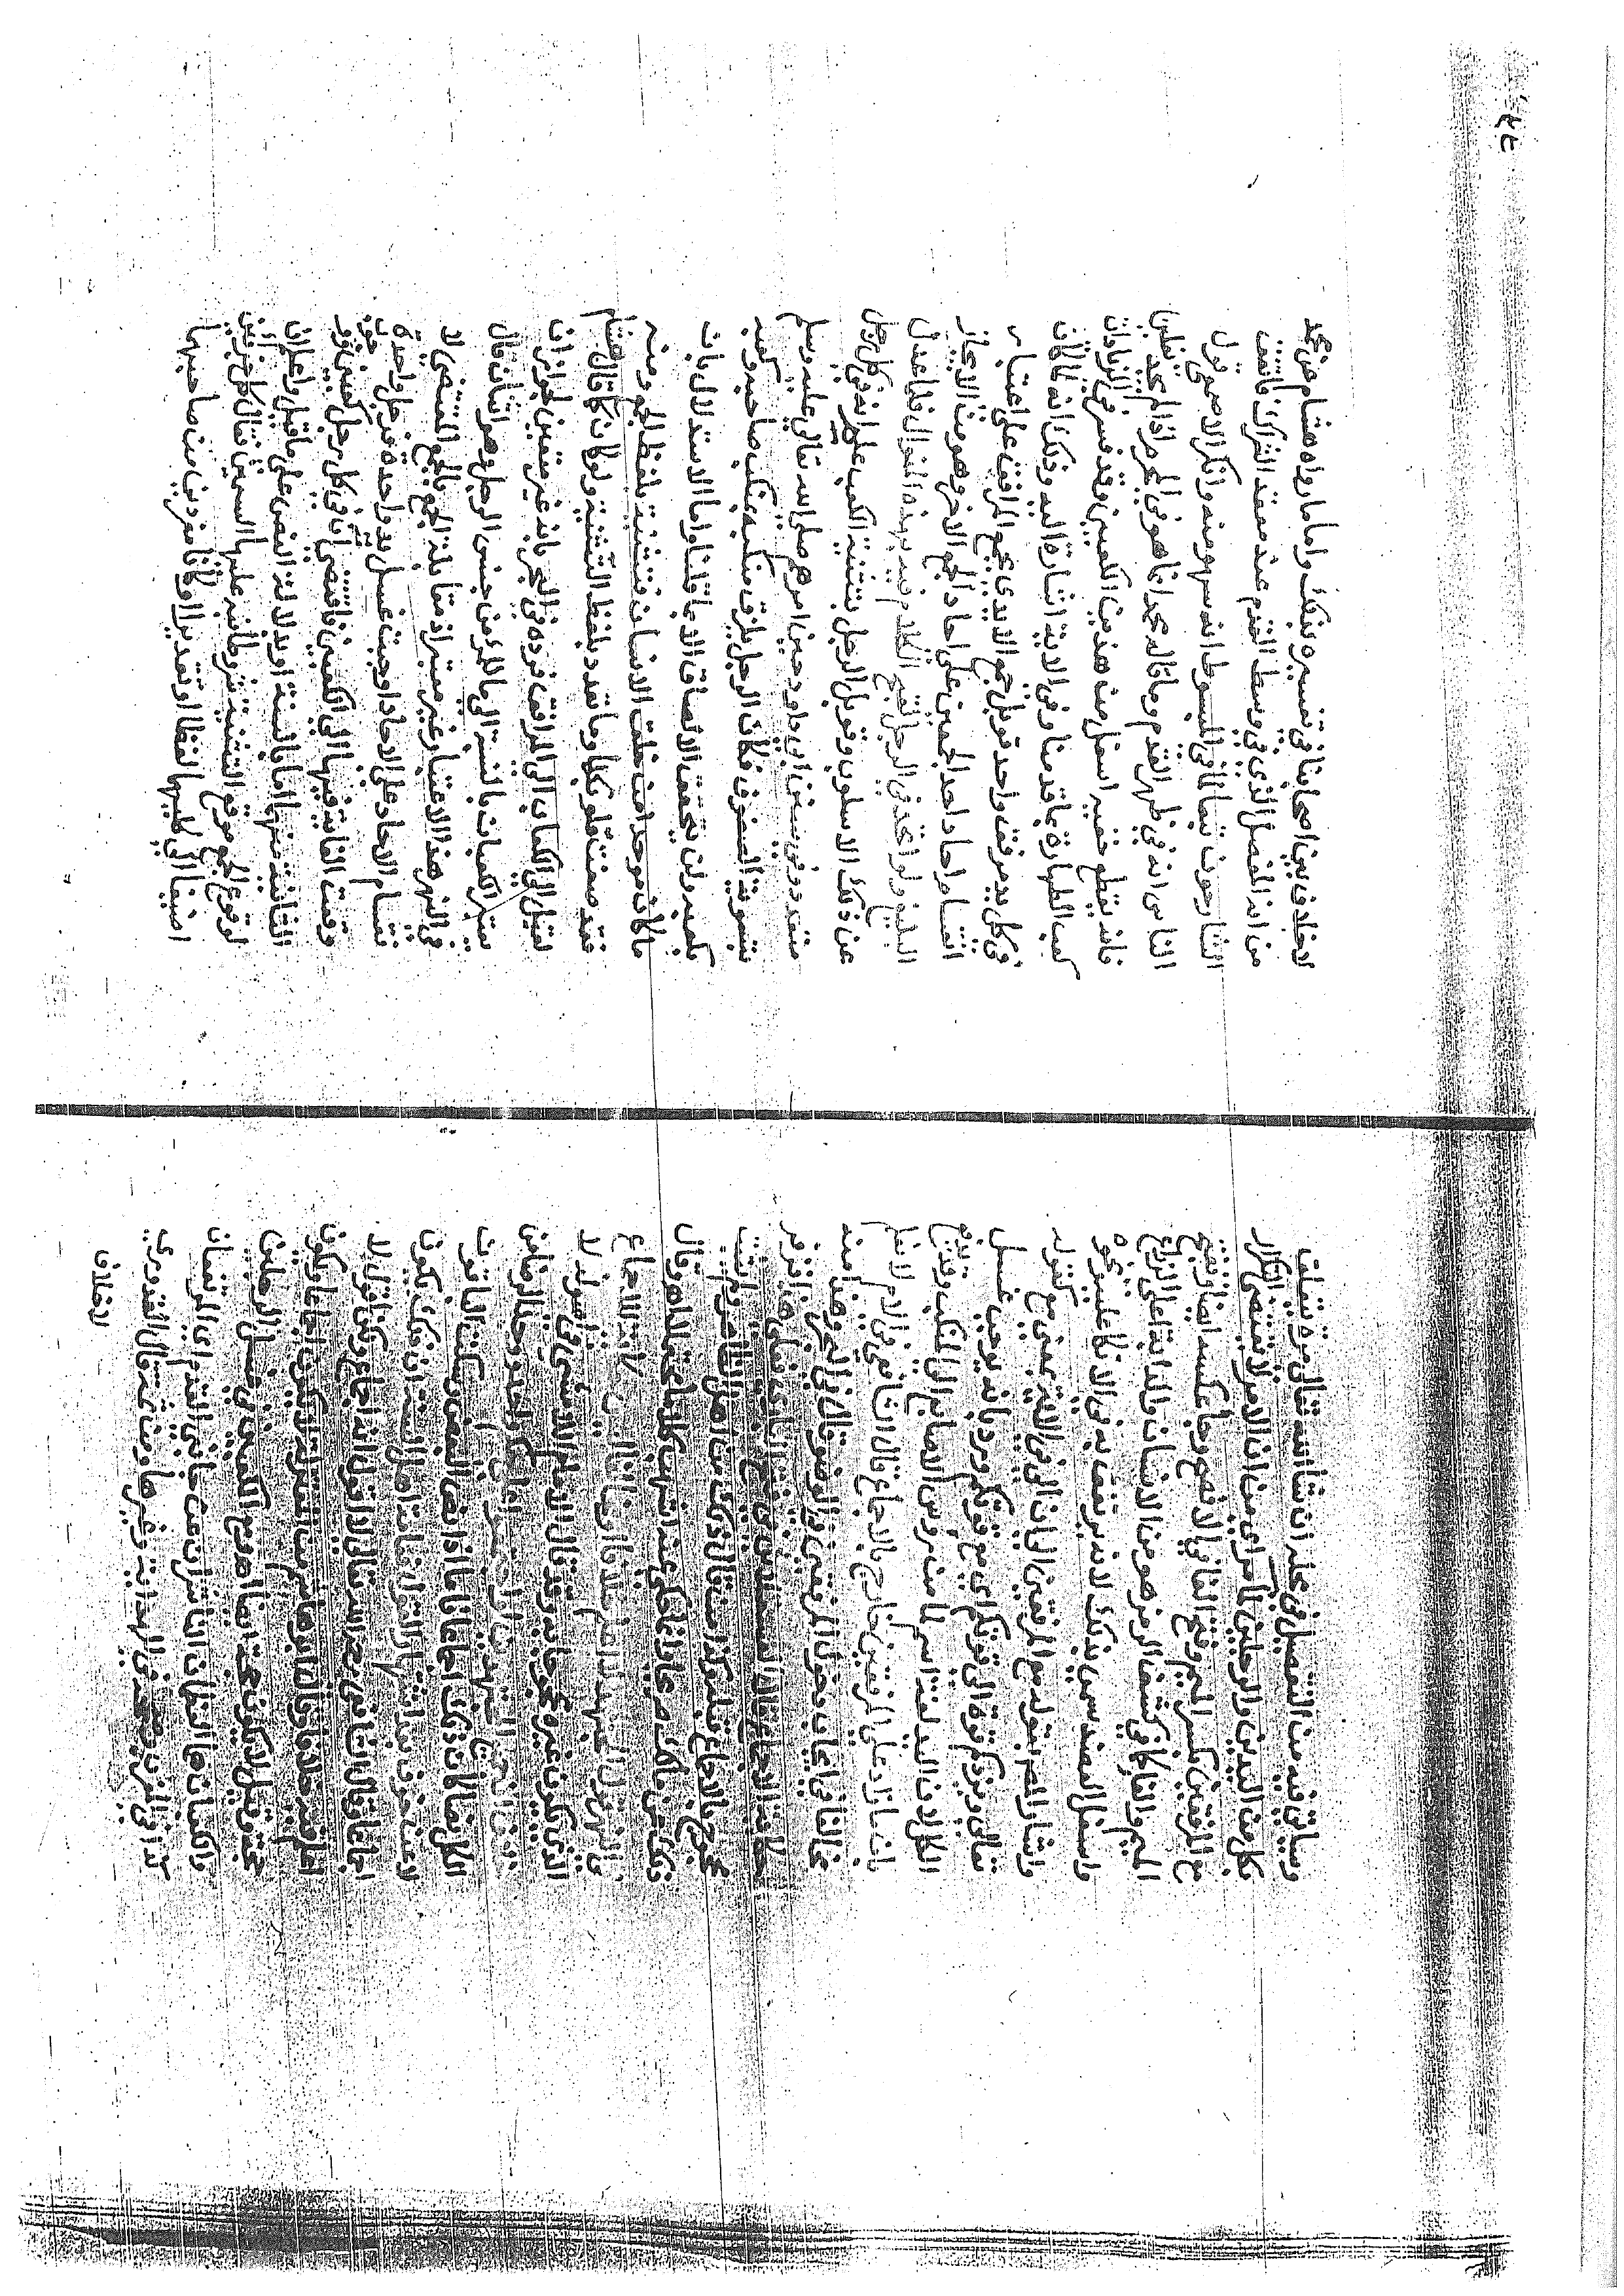 وسياتي فيه من التفصيل في محله ان شاء الله تعالى مرة يتعلق
بكل من اليدين والرجلين لما مر اي من ان الامر لا يقتضي التكرار
مع المرفقين بكسر الميم وفتح الفاء في الافصح وجاء عكسه ايضا وبفتح
الميم والفاء كما في كشف الرمز هو من الانسان والدابة اعلى الذراع
واسفل العضد سمي بذلك لانه يرتفق به في الاتكاء عليه ونحوه
واشار المص بقوله مع المرفقين الى ان الى في الاية بمعنى مع كقوله
تعالى ويزدكم قوة الى قوتكم اي مع قوتكم ورد بانه يوجب غسل
الكل لان اليد لغة اسم لما من روس الاصابع الى المنكب وقد يمنع
بان ما زاد على المرفقين خارج بالاجماع قال الشافعي في الام لا نعلم
مخالفا في ايجاب دخول المرفقين في الوضوء قال في البحر وهذا منه
حكاية الاجماع قال العسقلاني فعلى هذا فزفر
محجوج بالاجماع قبله وكذا من قال بذلك من اهل الظاهر ولم يثبت
ذلك عن مالك صريحا وانما حكى عنه اشهب كلاما محتملا اهـ وقال
في النهر قول المجتهد لا اعلم خلافا حكاية للاجماع
الذي يكون غيره محجوجا به فقد قال الامام اللامشي في اصوله لا
خلاف ان جميع المجتهدين لو على حكم واحد ووجد الرضا من
الكل نصا كان ذلك اجماعا فاما اذا نص البعض وسكت الباقون
لا عن خوف بعد اشتهار القول فعامة اهل السنة ان ذلك يكون
اجماعا وقال الشافعي رحمه الله تعالى لا اقول انه اجماع ولكن اقول لا
اعلم فيه خلافا وقال ابو هاشم من المعتزلة لا يكون اجماعا ويكون
حجة وقيل لا يكون حجة ايضا اهـ مع الكعبين في غسل الرجلين
والكعبان هما العظمان الناشزان عن جانبي القدم اي المرتفعان
كذا في المغرب وصححه في الهداية وغيرها ومن ثمة قال القدوري
لاخلاف
لاخلاف بين اصحابنا في تفسيره بذلك واما ما رواه هشام عن محمد
من انه المفصل الذي في وسط القدم عند معقد الشراك فاتفق
الشارحون تبعا لما في المبسوط انه سهو منه وانكر الاصمعي قول
الناس انه في ظهر القدم وما قاله محمد انما هو في المحرم اذا لم يجد نعلين
فانه يقطع خفيه اسفل من هذين الكعبين وقد فسر في الزيادات
كعب الطهارة بما قدمنا وفي الاية اشارة اليه وذلك انه لما كان
في كل يد مرفق واحد قوبل جمع الايدي بجمع المرافق على اعتبار
انقسام احاد احد الجمعين على احاد الجمع الاخر وهو من الايجاز
البليغ ولو اتحد في الرجل لفتح الكلام فيه بهذه المنوال فلما عدل
عن ذلك الاسلوب وقوبل الرجل بتثنية الكعب علم انه في كل رجل
متعدد وفي سنن ابي داود حين امرهم صلى الله تعالى عليه وسلم
بتسوية الصفوف فكان الرجل يلزق منكبه بمنكب صاحبه وكعبه
بكعبه ولن يتحقق الالصاق الا بما قلنا واما الاستدلال بان
ما كان موحدا من خلق الانسان فتثنيته بلفظ الجمع ومنه
فقد صغت قلوبكما وما تعدد بلفظ التثنية ولو كان كما قال هشام
لقيل الى الكعاب الى المرافق فرده في البحر بانه غير متعين لجواز ان
يعتبر الكعبان بالنسبة الى ما للمرء من جنس الرجل وهو اثنان قال
في النهر هذا الاعتبار غير معتبر اذ مقابلة الجمع بالجمع المقتضي لا
نقسام الاحاد على الاحاد اوجبت غسل يد واحدة ورجل واحدة
وقعت الغاية فيها الى الكعبين فاقتضى انها في كل رجل كعبين ووجوب
الثانية منها اما بالسنة او بدلالة النص على ما قيل واعلم ان
لوقوع الجمع موقع التثنية شروطا نبه عليها السمين فقال كل جزءين
اضيفا الى كليهما لفظا او تقديرا وكانا مفردين من صاحبيهما